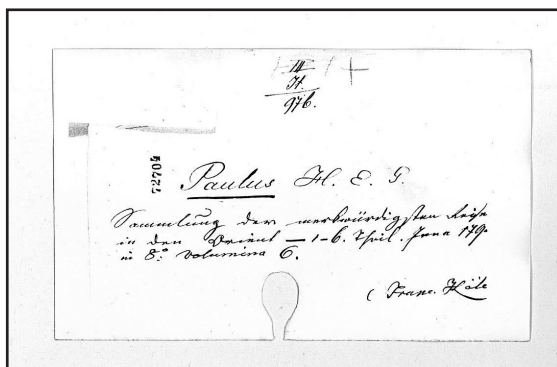 III
H.
976.
72704
Paulus H. E. G.
Sammlung der merkwürdigsten Reise
in den Orient — 1-6. Theil. Jena 179
in 8.° volumina 6.
( Franc.